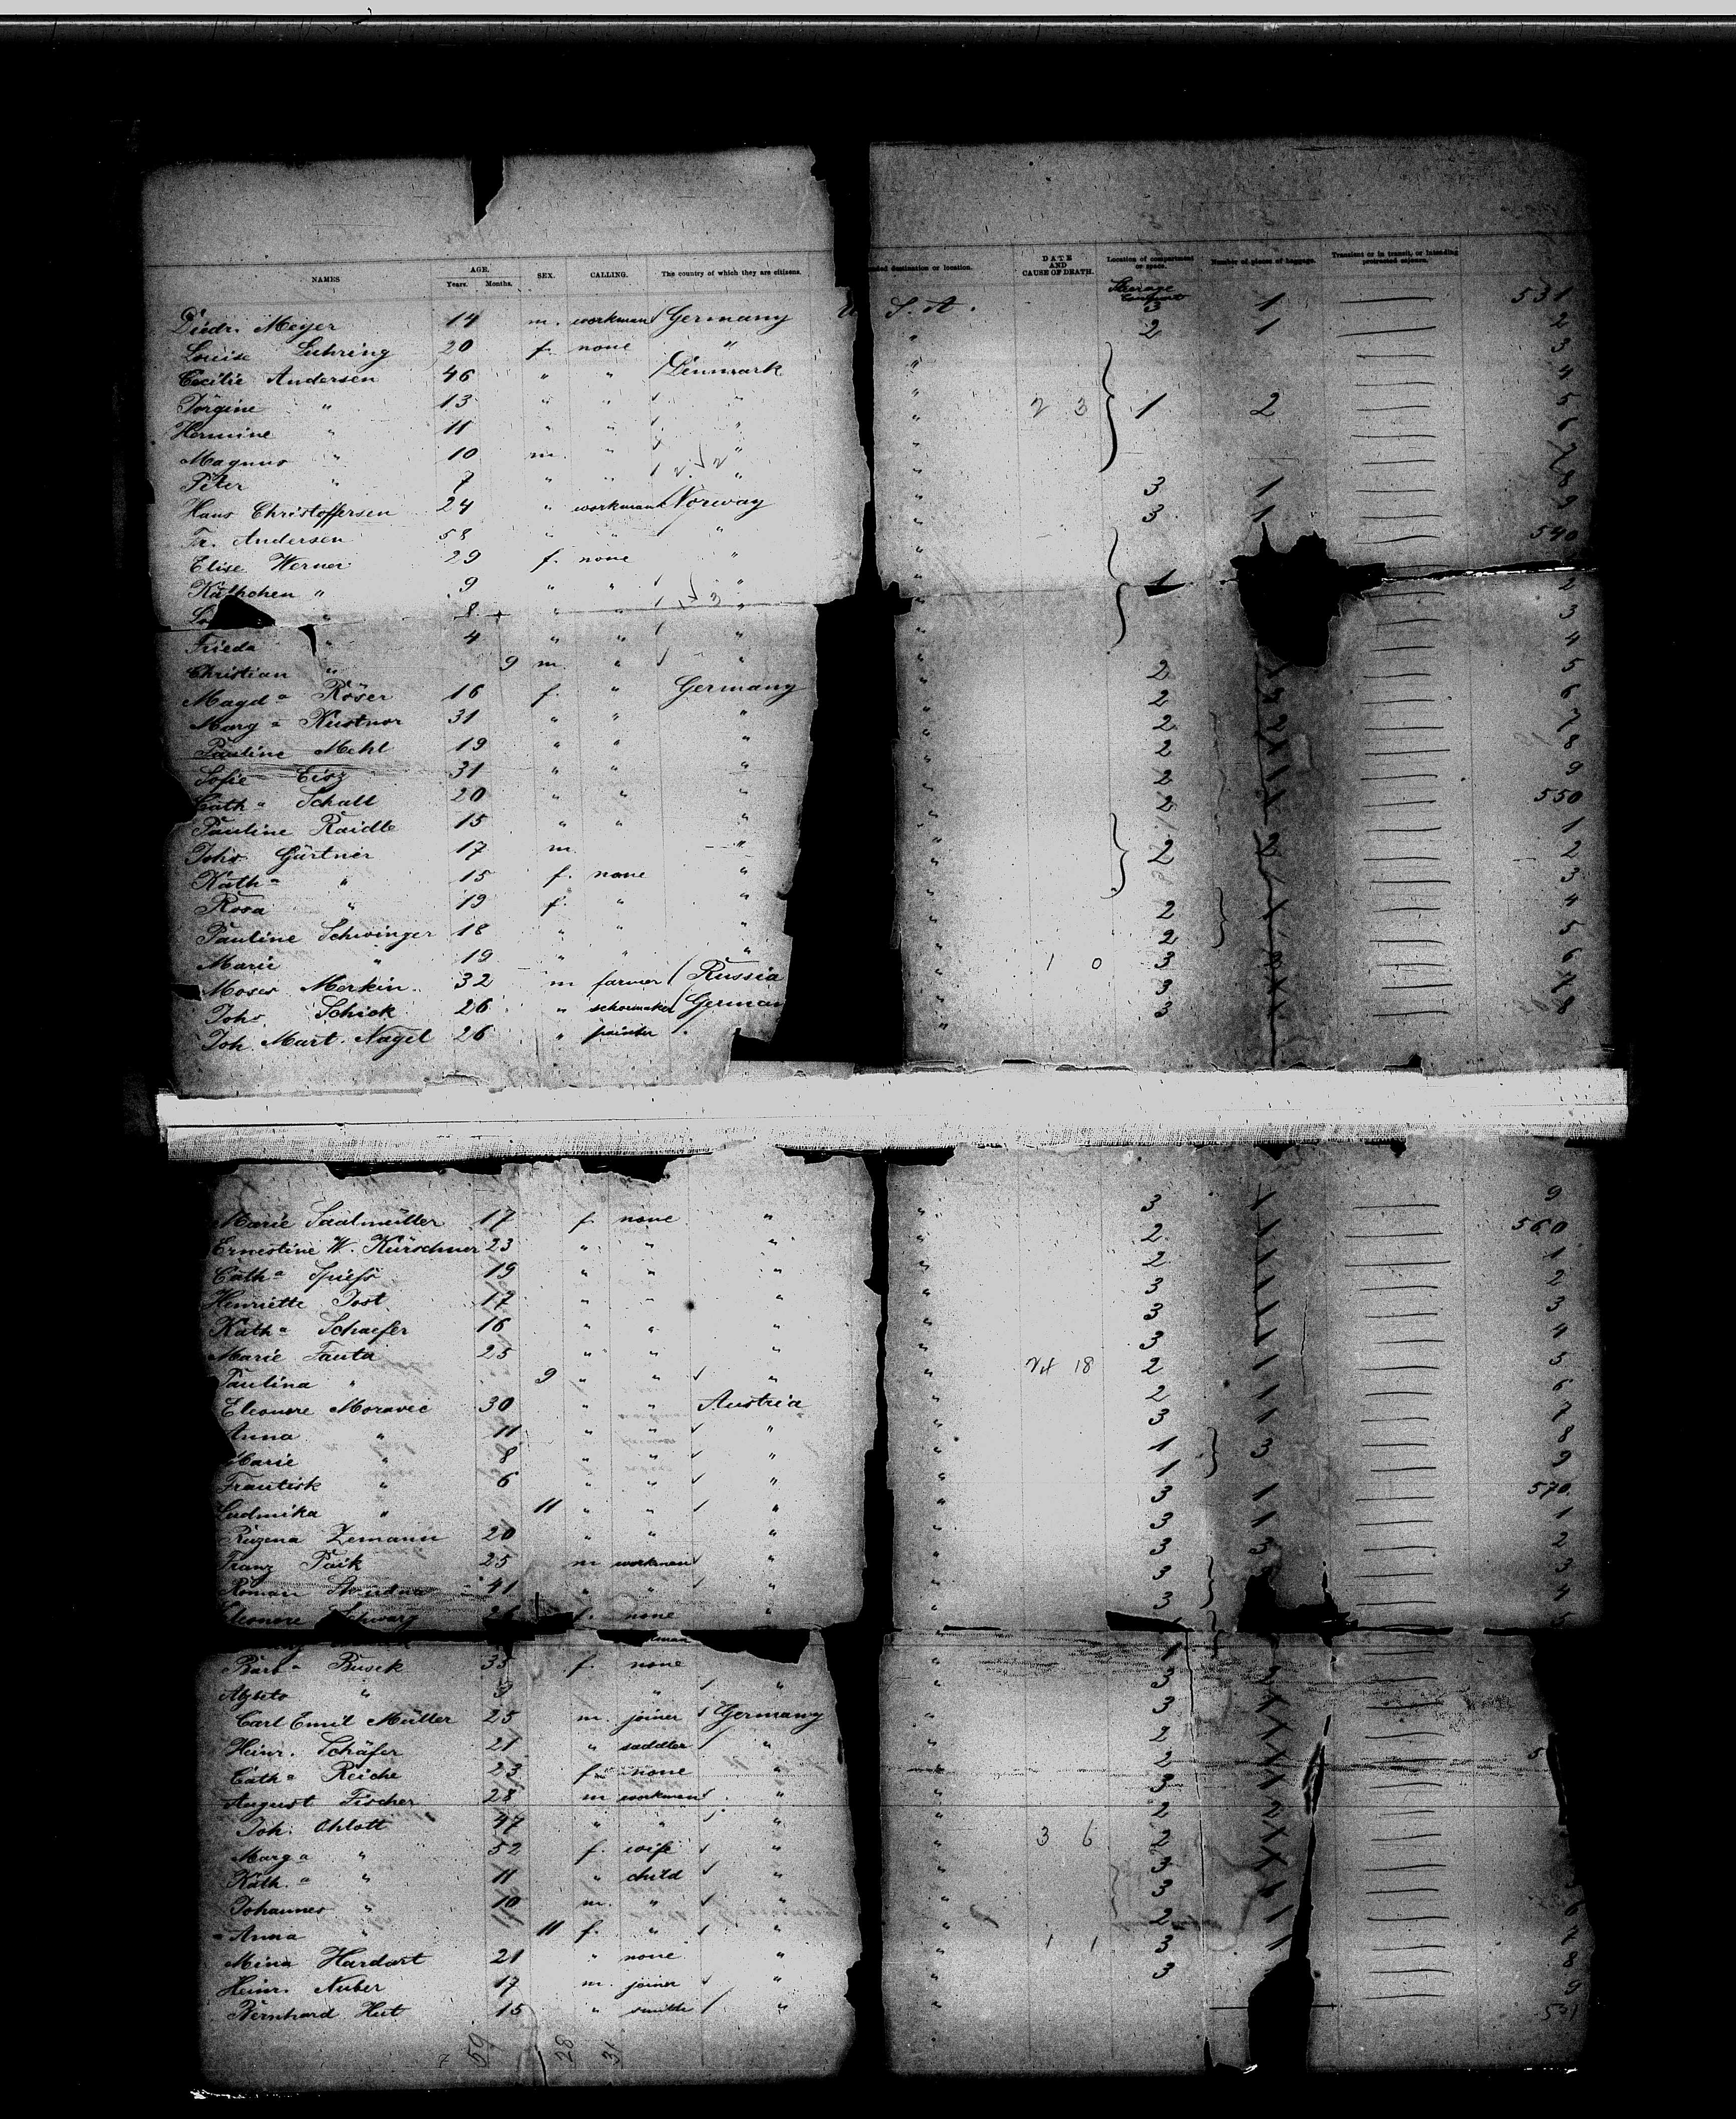 NAMES AGE. Years. Months. SEX. CALLING. The country of which they are citizens. destination or location. DATE AND CAUSE OF DEATH. Location of compartment or space. Number of pieces of baggage. Transient or in transit, or intending protracted sojourn.
Steerage
Diedr. Meyer 14 m. workman Germany S. A. 3 1 531
Louise Luhring 20 f. none " " 2 1 2
Cecilie Andersen 46 " " Denmark " 3
Jörgine " 13 " " " " 4
Hermine " 11 " " " " 2 3 1 2 5
Magnus " 10 m. " " " 6
Peter " 7 " " " " 7
Hans Christoffersen 24 " workman Norway " 3 1 8
Fr. Andersen 58 " " " " 3 1 9
Elise Werner 29 f. none " " 540
Käthchen " 9 " " " " 1
" 8 " " " " 2
Frieda " 4 " " " " 3
Christian " 9 m. " " " 4
Magda Röser 16 f. " Germany " 2 5
Marga Küstner 31 " " " " 2 6
Pauline Mehl 19 " " " " 2 7
Sofie Eisz 31 " " " " 2 8
Catha Schall 20 " " " " 2 9
Pauline Raidle 15 " " " " 2 550
Johs Gärtner 17 m. " " 1
Katha " 15 f. none " " 2 2 2
Rosa " 19 f. " " " 3
Pauline Schwinger 18 " " " " 2 4
Marie " 19 " " " " 2 5
Moses Merkin 32 m farmer Russia " 1 0 3 6
Johs Schick 26 " schoemaker German " 3 7
Joh. Mart. Nagel 26 " painter " 3 8
Marie Saalmüller 17 f. none " " 3 9
Ernestine W. Kürschner 23 " " " " 2 560
Catha Spiess 19 " " " " 2 1
Henriette Jost 17 " " " " 3 2
Katha Schaefer 16 " " " " 3 3
Marie Fauta 25 " " " " 3 4
Paulina " 9 " " " " 18 2 5
Eleonore Moravec 30 " " Austria " 2 6
Anna " 11 " " " " 3 7
Marie " 8 " " " " 1 3 8
Frantisk " 6 " " " " 1 9
Ludmika " 11 " " " " 3 1 570
Ruzena Zemann 20 " " " " 3 1 1
Franz Paik 25 m workman " " 3 3 2
Roman 41 " " " " 3 3
Eleonore Schwarz 26 f. none " " 3 4
5
Barba Busek 35 f. none "
" 3 " " "
Carl Emil Müller 25 m. joiner Germany " 3
Heinr. Schäfer 21 " saddler " " 2
Catha Reiche 23 f. none " " 2 5
August Fischer 28 m workman " " 3
Joh. Ohlott 47 " " " " 2
Marga " 52 f. wife " " 3 6 2
Käth.a " 11 " child " " 3
Johannes " 10 m. " " " 3
Anna " 11 f. " " " 2 6
Mina Hardart 21 " none " " 1 1 3 7
Heinr. Nuber 17 m. joiner " " 3 8
Bernhard Hut 15 " smith " " 9
7 59 28 31